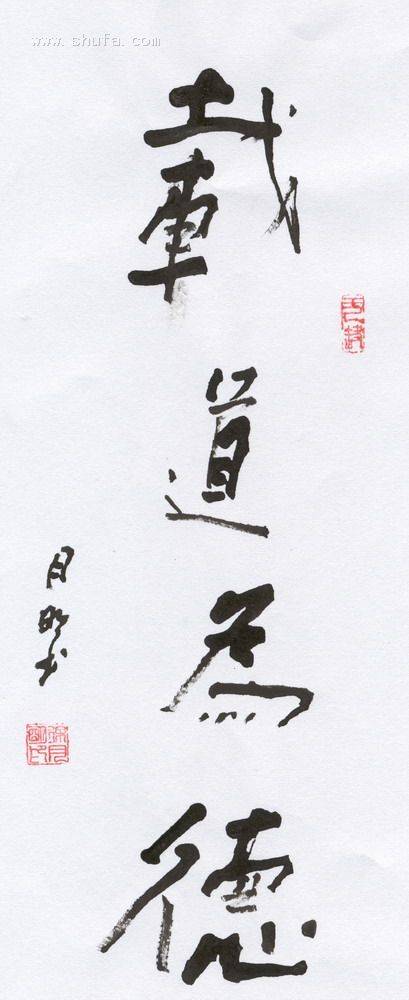 www.shufa.com
載道為德
月明书